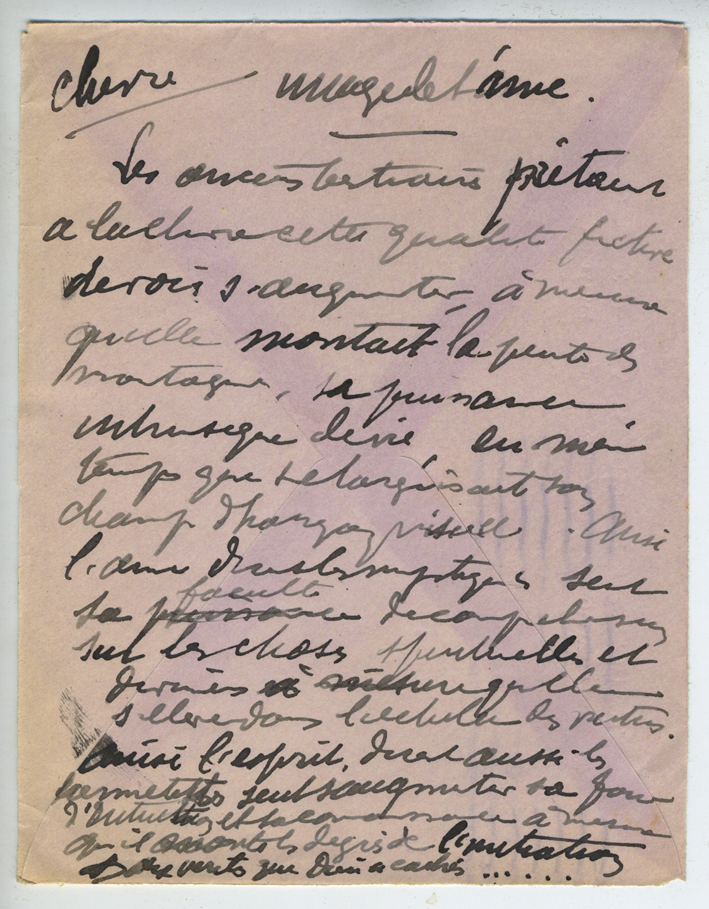 chevre image de l'âme.
Les anciens bestiaires prêtaient
a la chevre cette qualité fictive
de voir s'augmenter, à mesure
qu'elle montait la pente des
montagnes, sa puissance
intrinseque de vie, en même
temps que s'elargissait son
champ d'horizon visuel. Ainsi
l'ame disent les mystiques sent
sa faculté puissance de comprehension
sur les choses spirituelles et
divines à mesure qu'elle
s'élève dans l'echelle des vertus.
Ainsi l'esprit, disent aussi les
hermetistes sent s'augmenter sa force
d'intuition et sa connaissance à mesure
qu'il monte les degrés de l'initiation
aux verités que Dieu a cachés ......